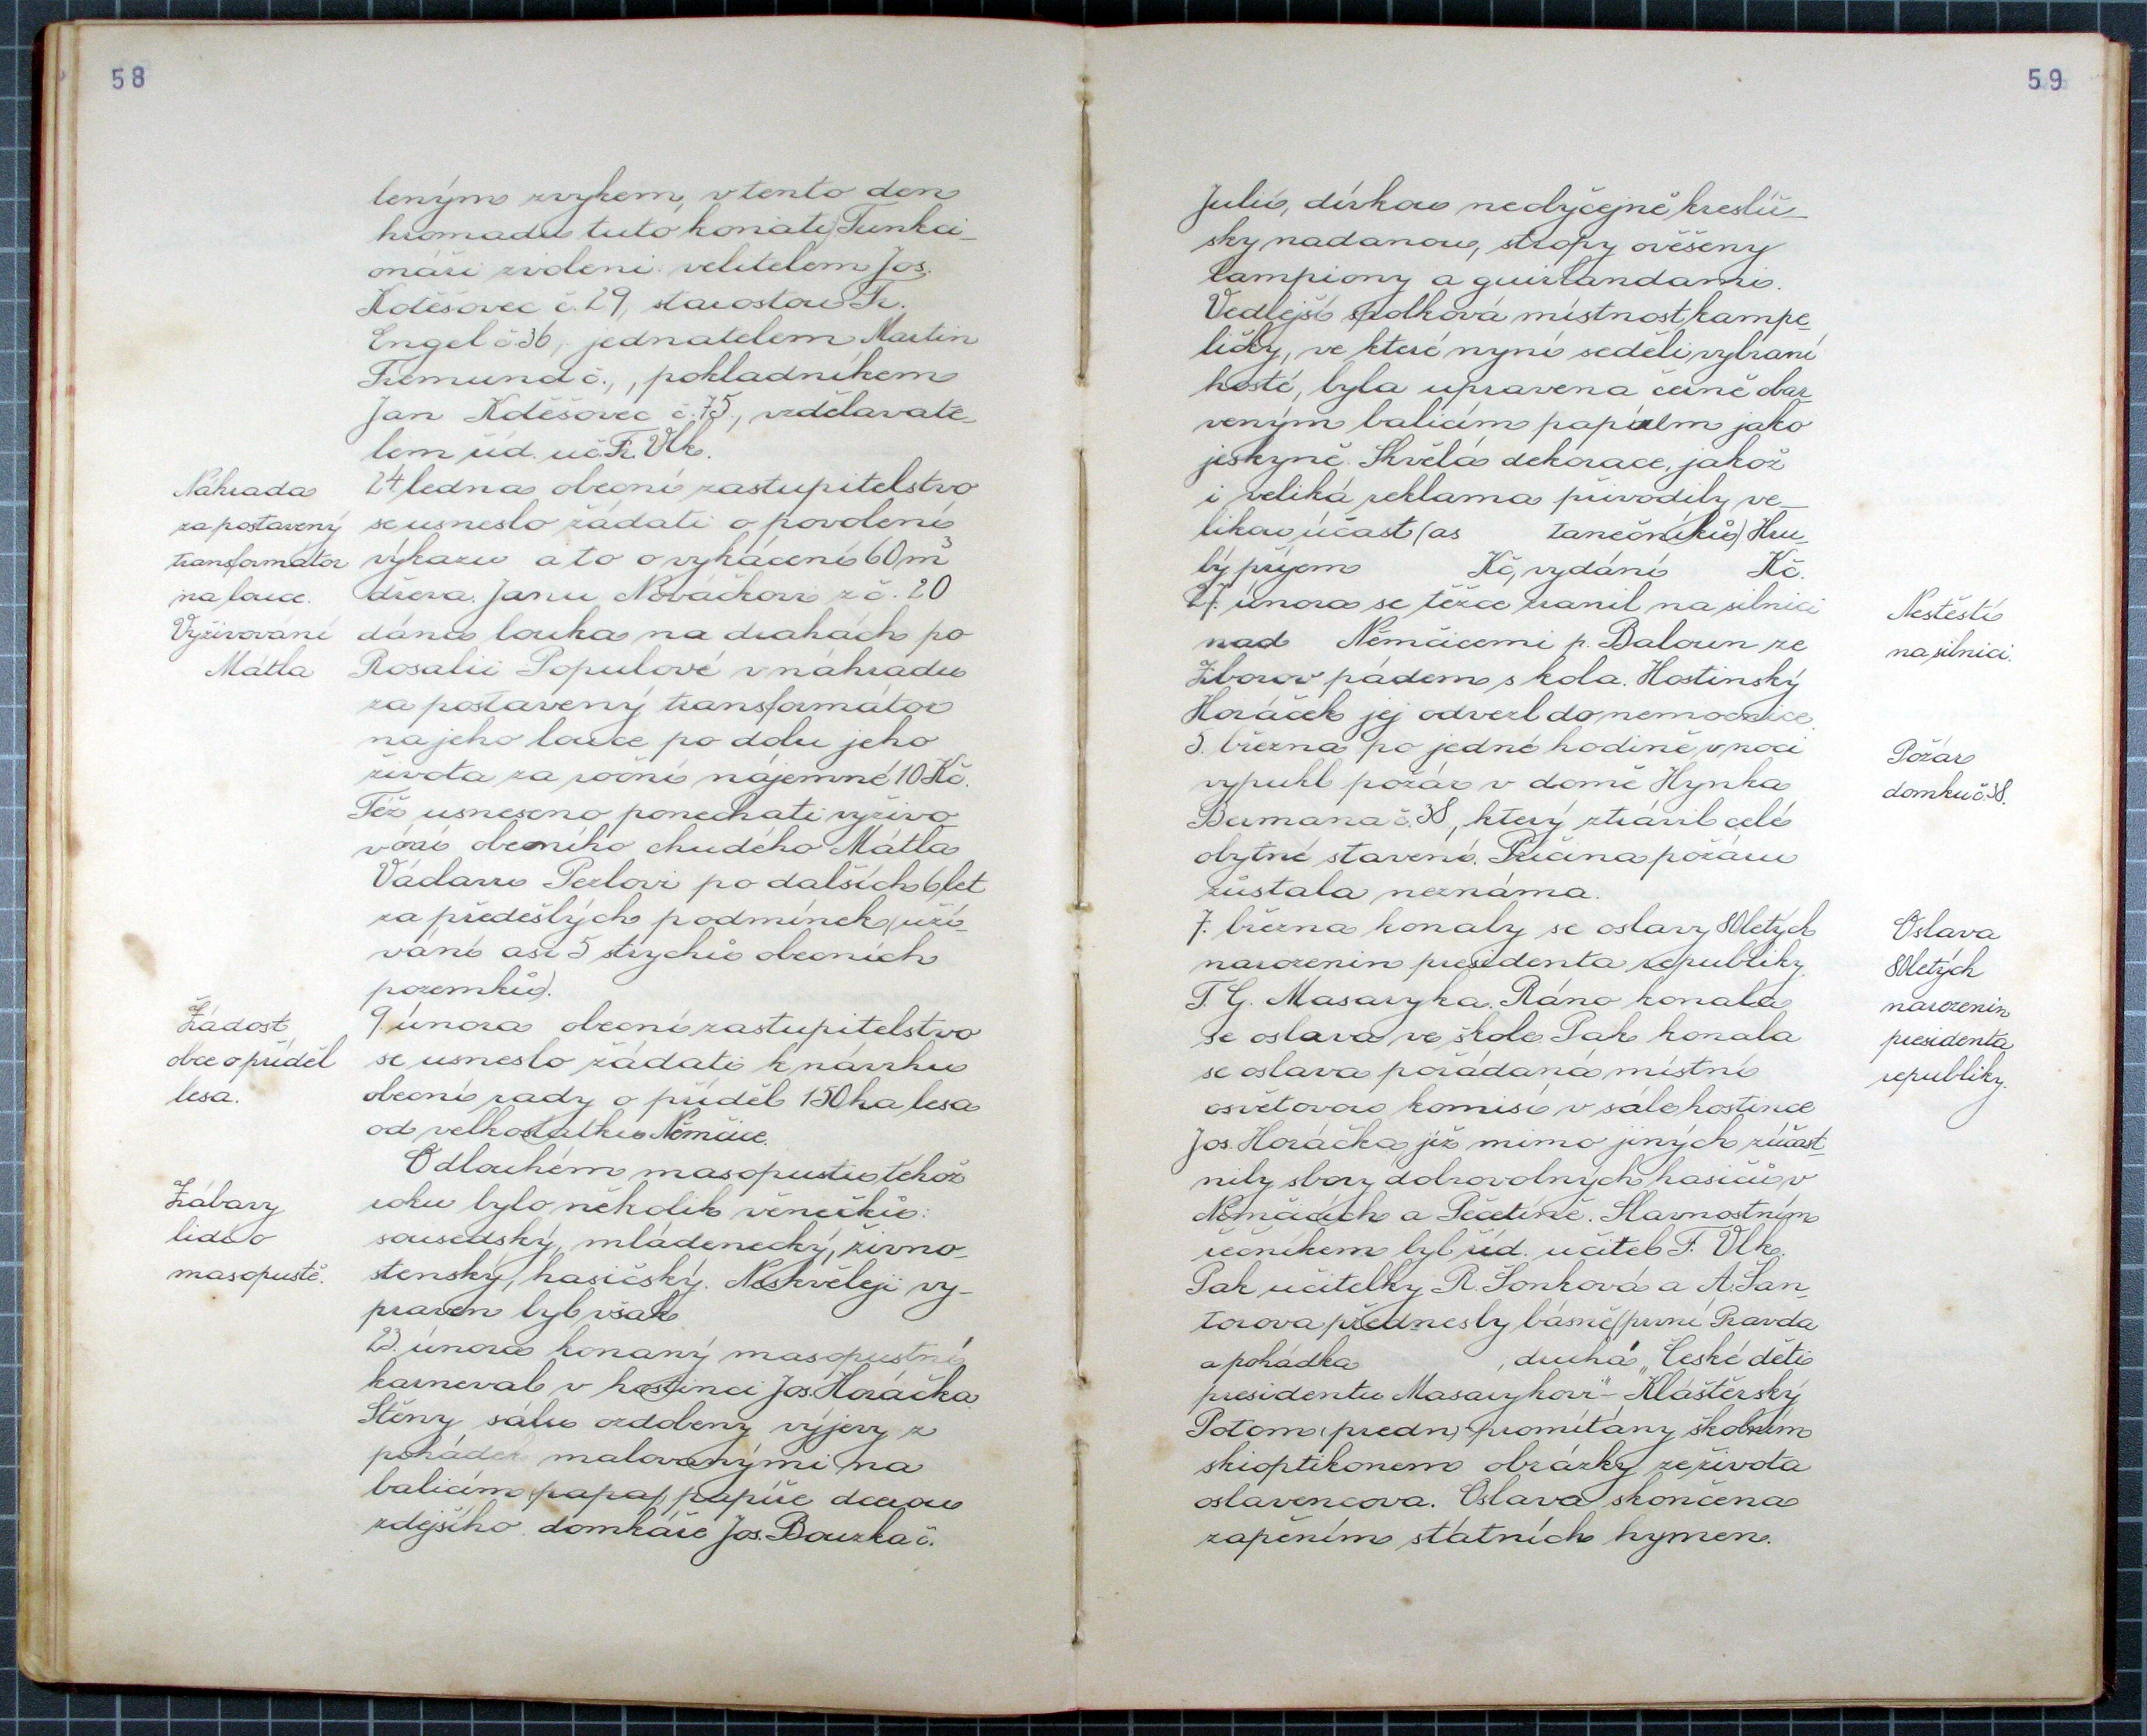 58
leným zvykem, v tento den
hromadu tuto konati) Funkci-
onáři zvoleni: velitelem Jos.
Kděšovec č. 29, starostou Fr.
Engel č 36, jednatelem Martin
Fremund č., , pokladníkem
Jan Kděšovec č. 75, vzdělavate-
lem říd. uč. Fr. Vlk.
Náhrada
za postavený
transformátor
na louce.
Vyživování
Mátla
24 ledna obecní zastupitelstvo
se usneslo žádati o povolení
výkazu a to o vykácení 60 m³
dřeva. Janu Nováčkovi z č. 20
dána louka na drahách po
Rosalii Populové v náhradu
za postavený transformátor
na jeho louce po dobu jeho
života za roční nájemné 10 Kč.
Též usneseno ponechati vyživo-
vání obecního chudého Mátla
Perlovi po dalších 6 let
za předešlých podmínek (uží-
vání asi 5 strychů obecních
pozemků).
Žádost
obce o příděl
lesa.
9. února obecní zastupitelstvo
se usneslo žádati k návrhu
obecní rady o příděl 150 ha lesa
od velkostatku Němčice.
Zábavy
lidu o
masopustě.
O dlouhém masopustu téhož
roku bylo několik věnečků:
sousedský, mládenecký, živno-
stenský, hasičský. Neskvěleji vy-
praven byl však
23. února konaný masopustní
karneval v hostinci Jos. Horáčka
Stěny sálu ozdobeny výjevy z
pohádek malovanými na
balicím papař, papíře dcerou
zdejšího domkáře Jos. Bouzka č.
59
Julií, dívkou neobyčejně kreslíř-
sky nadanou, stropy ověšeny
lampiony a guirlandami.
Vedlejší spolková místnost kampe-
ličky, ve které nyní seděli vybraní
hosté, byla upravena černě obar-
veným balicím papírem jako
jeskyně. Skvělá dekorace, jakož
i veliká reklama přivodily ve-
likou účast (as tanečníků) Hru-
bý příjem Kč, vydání Kč.
27. února se těžce zranil na silnici
nad Němčicemi p. Baloun ze
Zborov pádem s kola. Hostinský
Horáček jej odvezl do nemocnice.
Neštěstí
na silnici.
5. března po jedné hodině v noci
vypukl požár v domě Hynka
Bermana č. 38, který ztrávil celé
obytné stavení. Příčina požáru
zůstala neznáma.
Požár
domku č. 38.
7. března konaly se oslavy 80letých
narozenin presidenta republiky
T. G. Masaryka. Ráno konala
se oslava ve škole. Pak konala
se oslava pořádaná místní
osvětovou komisí v sále hostince
Jos. Horáčka, jíž mimo jiných zúčast-
nily sbory dobrovolných hasičů v
Němčicích a Pečetíně. Slavnostním
řečníkem byl říd. učitel F. Vlk.
Pak učitelky R. Šonková a A. Šan-
torova přednesly básně (první Pravda
a pohádka , druhá „České děti
presidentu Masarykovi" - Klášterský
Potom (predn) promítány školním
skioptikonem obrázky ze života
oslavencova. Oslava skončena
zapěním státních hymen.
Oslava
80letých
narozenin
presidenta
republiky.